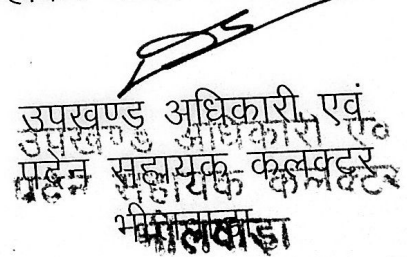 उपखण्ड अधिकारी, एवं
उपखण्ड अधिकारी ए०
पदेन सहायक कलक्टर
पदेन सहायक कलक्टर
भीलवाड़ा